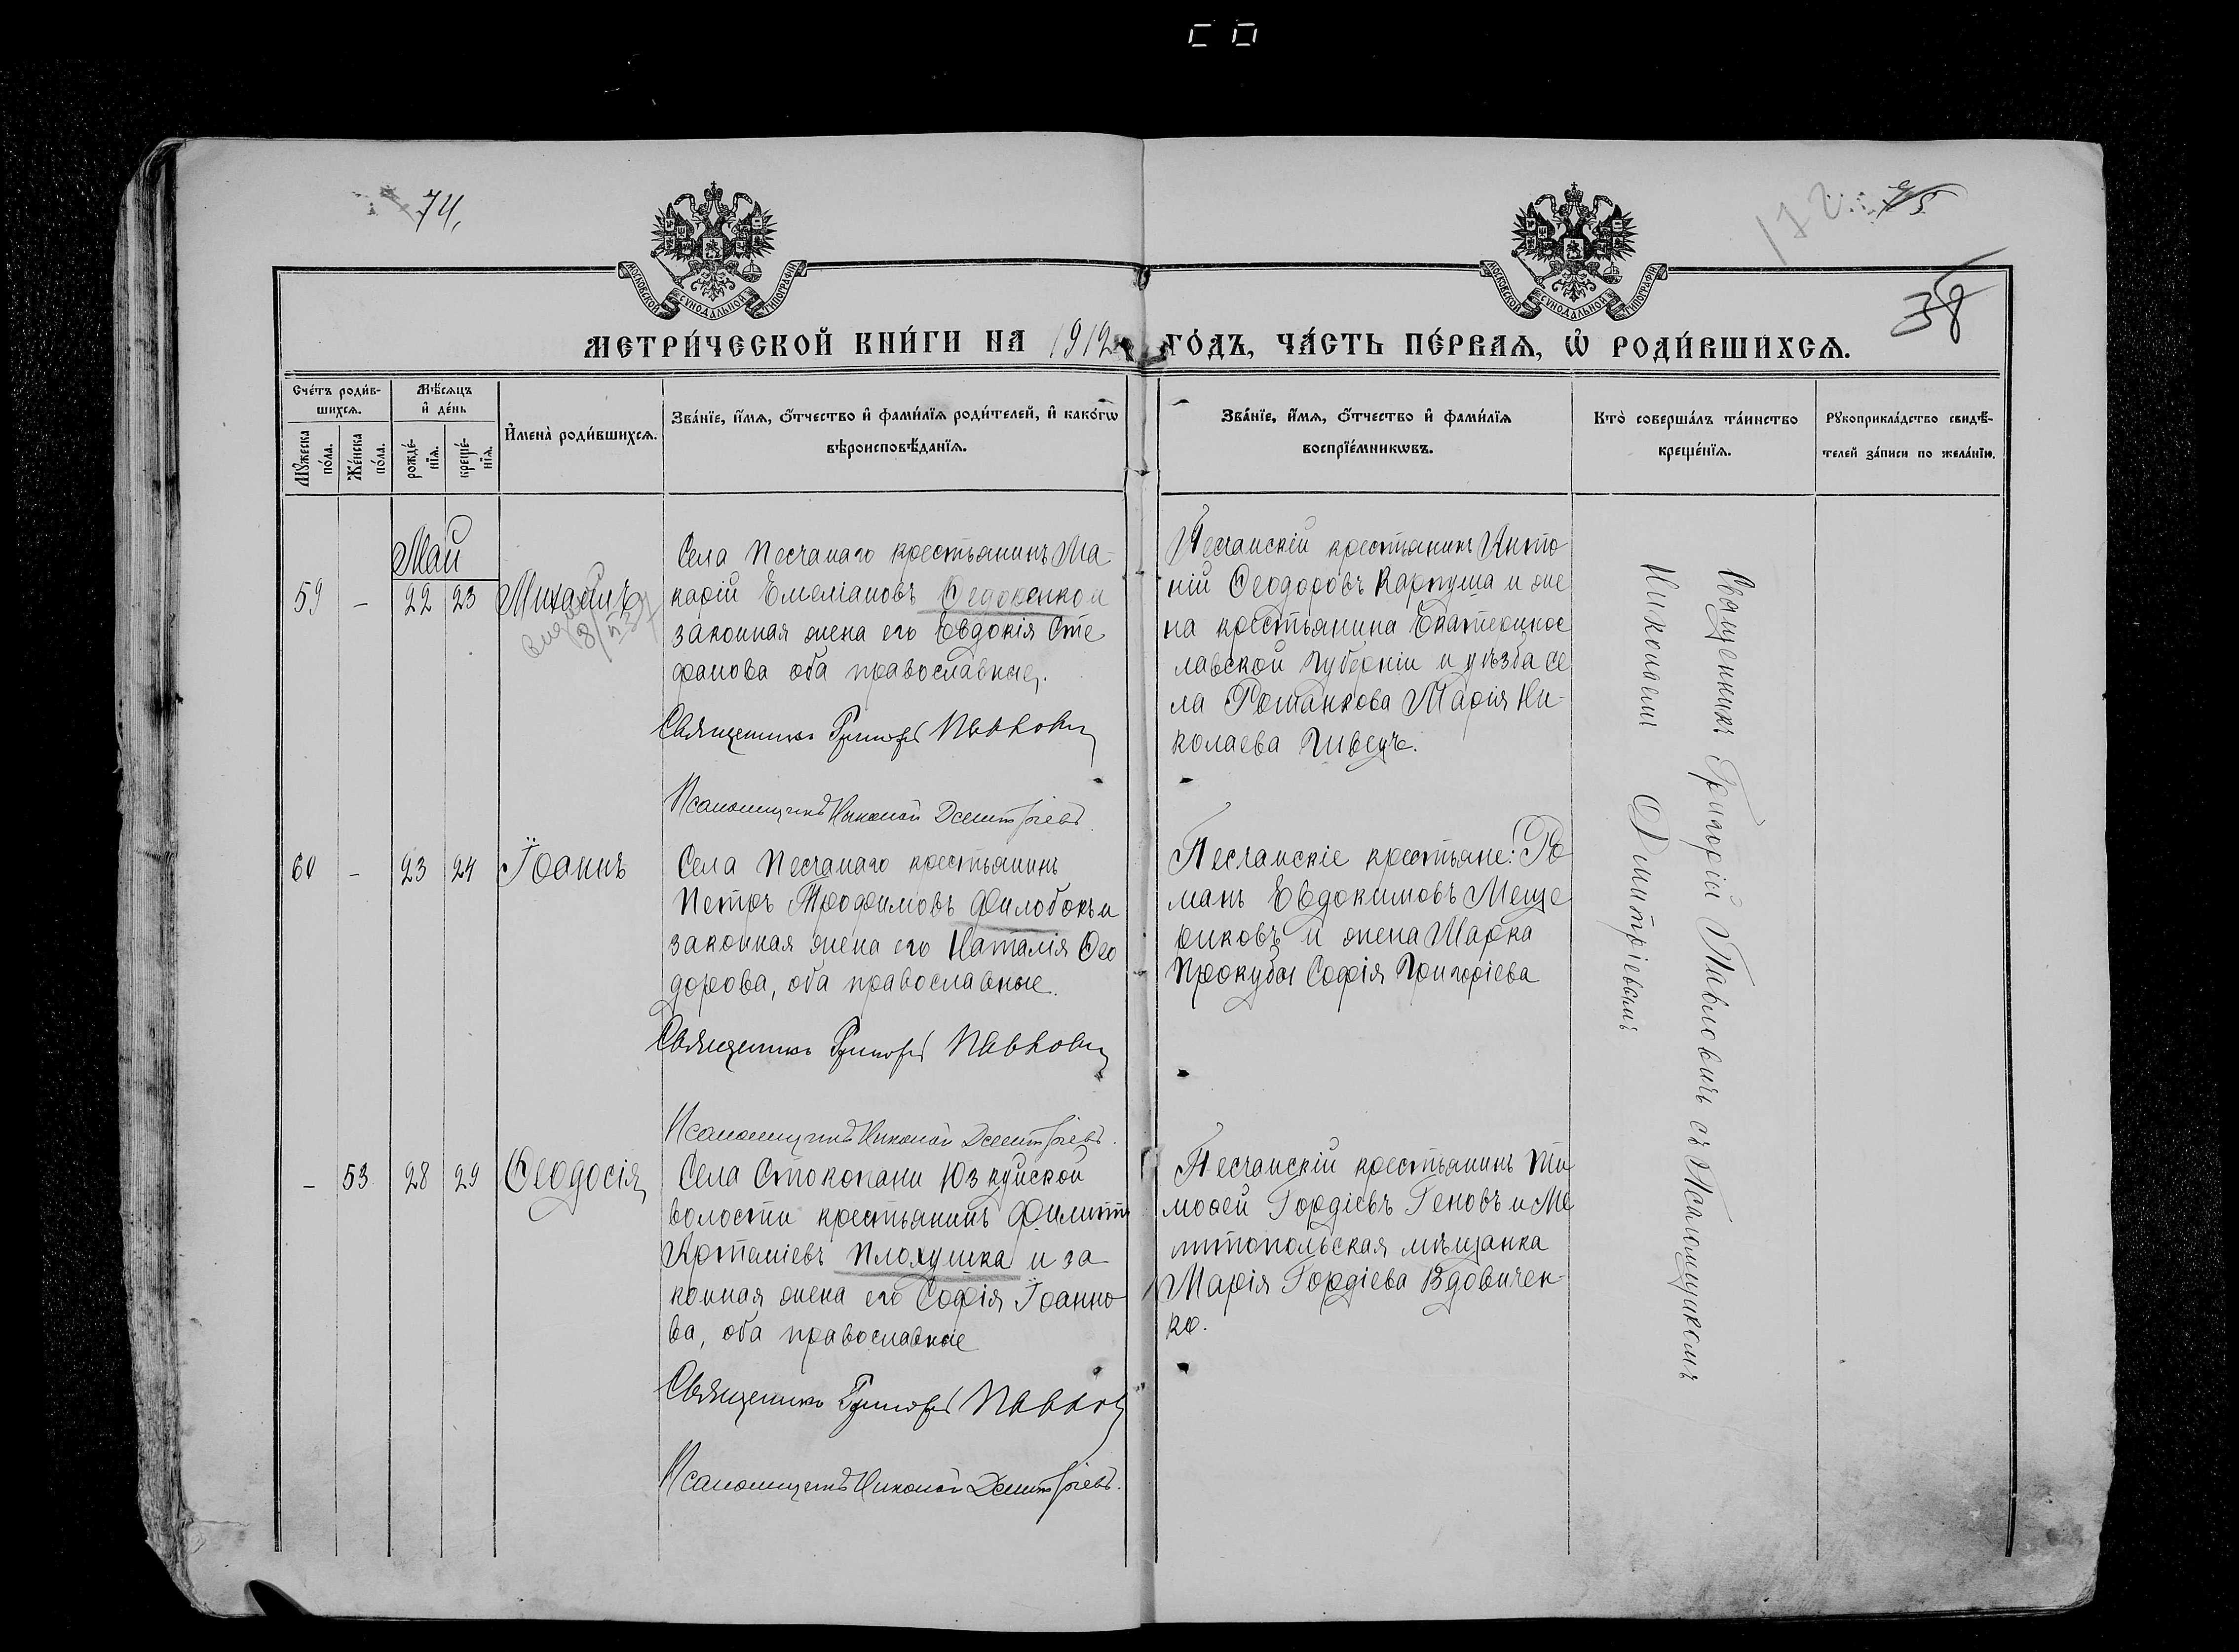 74.
175.
38
МОСКОВСКОЙ СѴНОДАЛЬНОЙ ТИПОГРАФІИ
МОСКОВСКОЙ СѴНОДАЛЬНОЙ ТИПОГРАФІИ
МЕТРИ́ЧЕСКОЙ КНИ́ГИ НА 1912 ГО́ДЪ, ЧА́СТЬ ПЕ́РВАѦ, Ѡ҆ РОДИ́ВШИХСѦ.
Сче́тъ роди́в-
шихсѧ.
Мꙋжеска по́ла.
Же́нска по́ла.
Мѣ́сѧцъ
и҆ де́нь
рожде́-
нїѧ.
креще́-
нїѧ.
И҆мена̀ роди́вшихсѧ.
Зва́нїе, и҆́мѧ, ѻ҆́тчество и҆ фами́лїѧ роди́телей, и҆ како́гѡ
вѣроисповѣ́данїѧ.
Зва́нїе, и҆́мѧ, ѻ҆́тчество и҆ фами́лїѧ
воспрїе́мникѡвъ.
Кто̀ соверша́лъ та́инство
креще́нїѧ.
Рꙋкоприкла́дство свидѣ́-
телей за́писи по жела́нїю.
Май
59 – 22 23 Михаилъ
Села Песчанаго крестьянинъ Ма-
карій Емеліановъ Ѳедоренко и
законная жена его Евдокія Сте
фанова оба православные.
Священникъ Григорій Павлович
Псаломщикъ Николай Дмитріевъ.
Песчанскій крестьянинъ Анто
ній Ѳеодоровъ Карпуша и же
на крестьянина Екатеринос
лавской губерніи и уѣзда се
ла Романкова Марія Ни-
колаева
60 – 23 24 Іоаннъ
Села Песчанаго крестьянинъ
Петръ Трофимовъ Филобокъ и
законная жена его Наталія Ѳео
дорова, оба православные.
Священникъ Григорій Павлович
Псаломщикъ Николай Дмитріевъ.
Песчанскіе крестьяне: Ро
манъ Евдокимовъ Меще
риковъ и жена Марка
Прокубы Софія Григоріева
– 53 28 29 Ѳеодосія
Села Стокопани Юзкуйской
волости крестьянинъ Филиппъ
Артеміевъ Плохушка и за
конная жена его Софія Іоанно
ва, оба православные
Священникъ Григорій Павлович
Псаломщикъ Николай Дмитріевъ.
Песчанскій крестьянинъ Ти
моѳей Гордіевъ Геновъ и Ме
литопольская мѣщанка
Марія Гордіева Вдовичен-
ко.
Священникъ Григорій Павловичъ съ Псаломщикомъ
Николаемъ Димитріевымъ